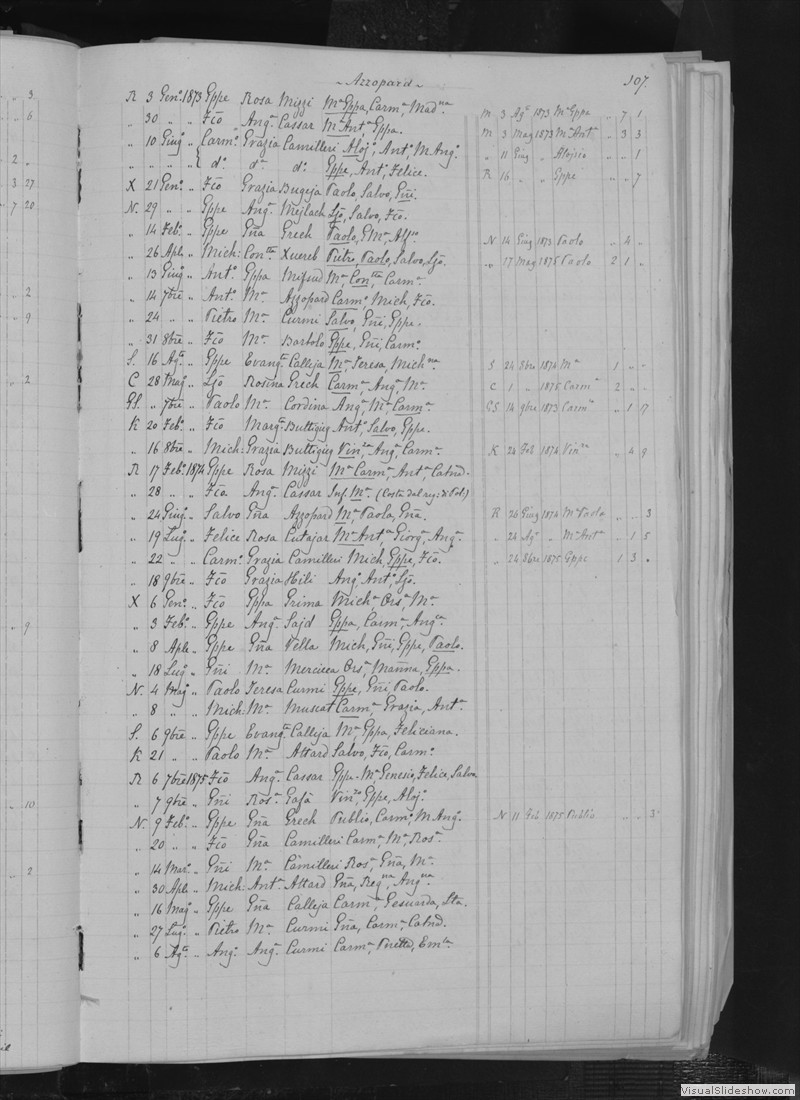 Azzopard 107.
R 3 Gen.º 1873 Gppe Rosa Mizzi Mª Gppa, Carmª, Madna. M 3 Agº 1873 Mª Gppa " 7 1
" 30 " " Fcō Angª Cassar Mª Antª, Gppa. M 3 Mag 1873 Mª Antª " 3 3
" 10 Giugº " Carmº Grazia Camilleri Alojº, Antº, M Angª. " 11 Giug " Alojsio " " 1
" " " " { dº dª dª Gppe, Antº, Felice. R 16 " " Gppe " " 7
X 21 Genº " Fcō Grazia Bugeja Paolo, Salvo, Gñi.
N. 29 " " Gppe Angª Mejlach Ljō, Salvo, Fcō.
" 14 Febº " Gppe Gña Grech Paolo, N 14 Giug 1873 Paolo " 4 "
" 26 Aple " Mich: Conta Xuereb Pietro, Paolo, Salvo, Ljō. " 17 Mag 1875 Paolo 2 1 "
" 13 Giugº " Antº Gppa Mifsud Mª, Conta, Carmª.
" 14 7bre " Antº Mª Azzopard Carmº Mich, Fcō.
" 24 " " Pietro Mª Curmi Salvo, Gñi, Gppe.
" 31 8bre " Fcō Mª Bartolo Gppe, Gñi, Carmº.
S. 16 Agº " Gppe Evangta Calleja Mª Teresa, Michna. S 24 8bre 1874 Mª 1 " "
C 28 Mag " Ljō Rosina Grech Carmª, Angª, Mª. C 1 " 1875 Carmª 2 " "
GS. " 7bre " Paolo Mª Cordina Angª Mª Carmª. GS 14 9bre 1873 Carmª " 1 17
K 20 Febº " Fcō Margª Buttigieg Antº, Salvo, Gppe.
" 16 8bre " Mich: Grazia Buttigieg Vinza, Angª, Carmª. K 24 Feb 1874 Vinza " 4 9
R 17 Febº 1874 Gppe Rosa Mizzi Mª Carmª, Antª, Catnd.
" 28 " " Fcō Angª Cassar Inf. Mª.
" 24 Giugº " Salvo Gña Azzopard Mª, Paola, Gña. R 26 Giug 1874 Mª Paola " " 3
" 19 Lugº " Felice Rosa Cutajar Mª Antª, Giorgª, Angª. " 24 Agº " Mª Antª " 1 5
" 22 " " Carmº Grazia Camilleri Mich, Gppe, Fcō. " 24 8bre 1875 Gppe 1 3 "
" 18 9bre " Fcō Grazia Hili Angº, Antº, Ljō.
X 6 Genº " Fcō Gppa Grima Michª Orsª, Mª.
" 3 Febº " Gppe Angª Sajd Gppa, Carmª, Angca.
" 8 Aple " Gppe Gña Vella Mich, Gñi, Gppe, Paolo.
" 18 Lugº " Gñi Mª Mercieca Orsª, Marina, Gppa.
N. 4 Mag " Paolo Teresa Curmi Gppe, Gñi, Paolo.
" 8 " " Mich: Mª Muscat Carmª, Grazia, Antª.
S. 6 9bre " Gppe Evangta Calleja Mª, Gppa, Feliciana.
K 21 " " Paolo Mª Attard Salvo, Fcō, Carmº.
R 6 7bre 1875 Fcō Angª Cassar Gppe Mª, Genesio, Felice, Salvo
" 7 9bre " Gñi Rosª Gafà Vinzo, Gppe, Alojº.
N. 9 Febº " Gppe Gña Grech Publio, Carmº, M Angº. N 11 Feb 1875 Publio " " 3
" 20 " " Fcō Gña Camilleri Carmª, Mª, Rosª.
" 14 Mar. " Gñi Mª Camilleri Rosª, Gña, Mª.
" 30 Aple " Mich: Antª Attard Gña, Regna, Angna.
" 16 Mag " Gppe Gña Calleja Carmª, Gesuarda, Lta.
" 27 Lugº " Pietro Mª Curmi Gña, Carmª, Catnd.
" 6 Agº " Angº Angª Curmi Carmª,
VisualSlideshow.com